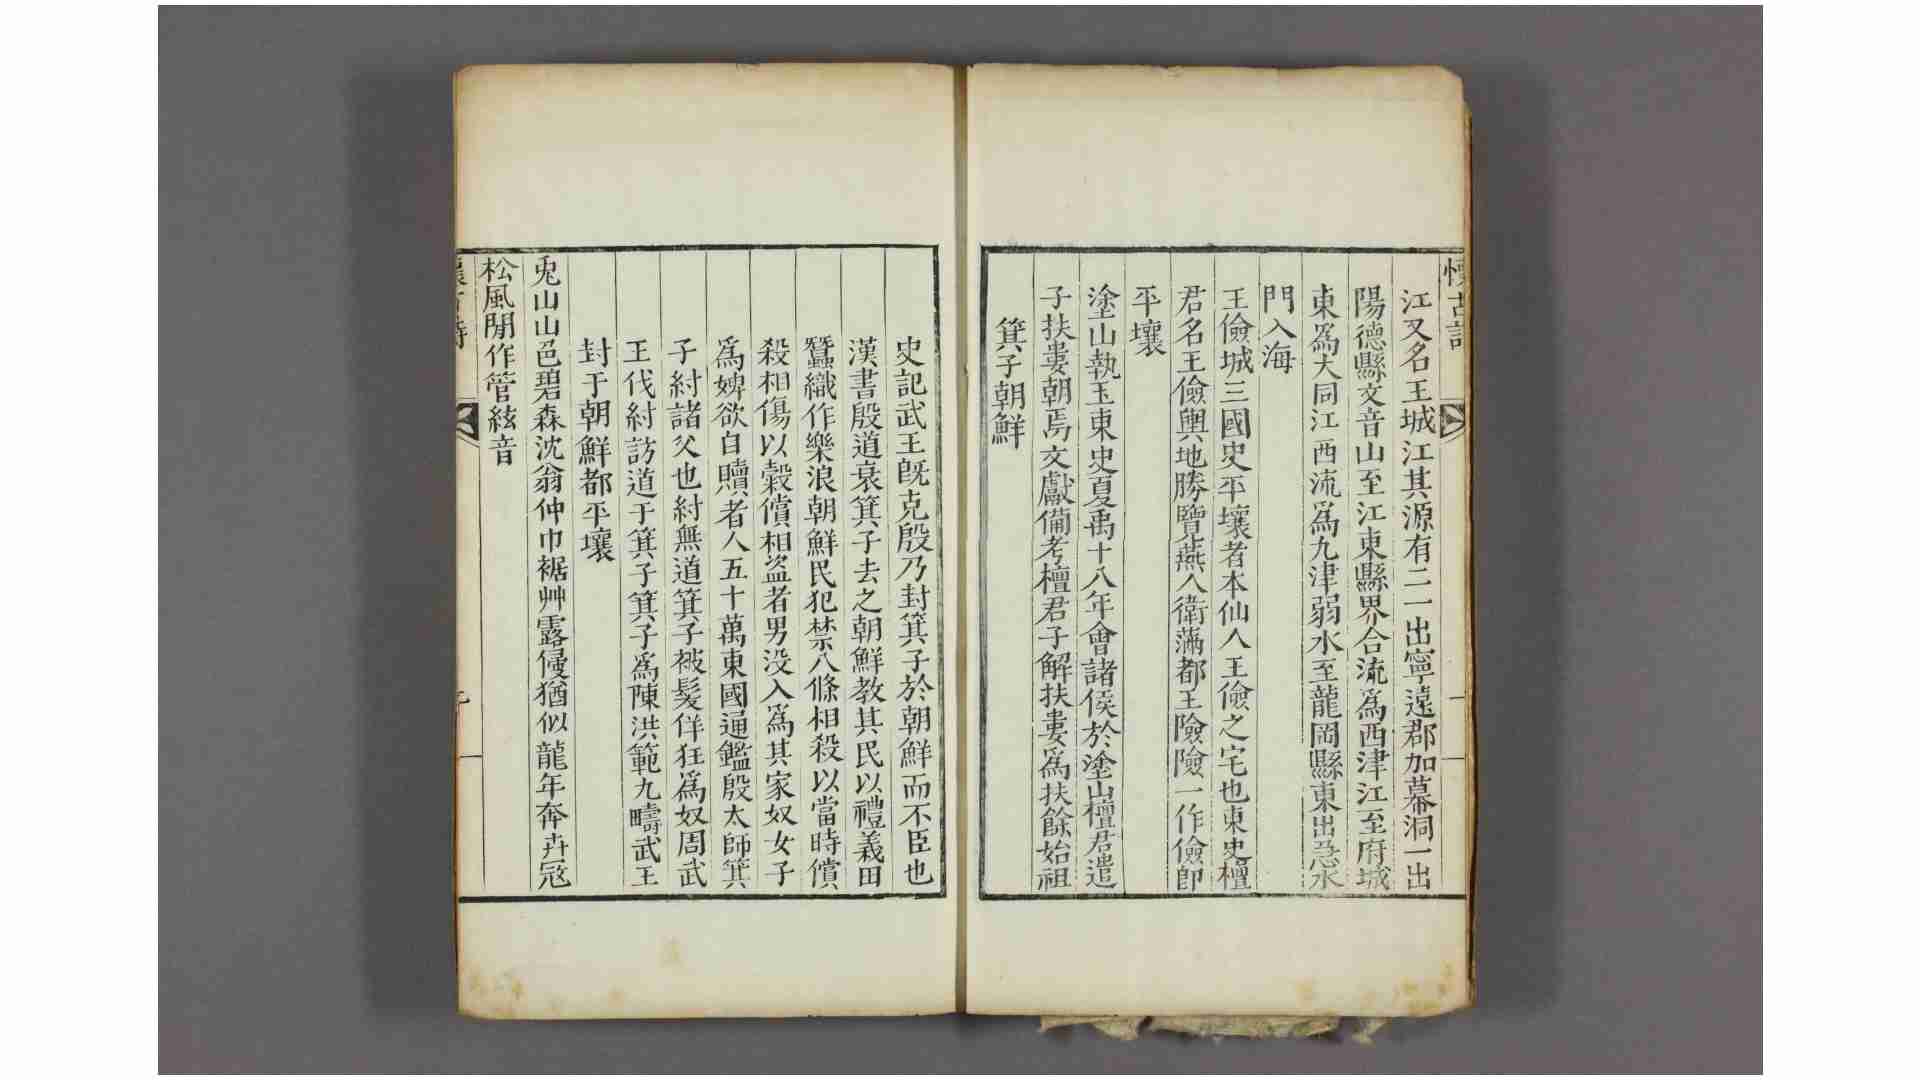 懷古詩
江又名王城江其源有二一出寧遠郡加幕洞一出
陽德縣文音山至江東縣界合流爲西津江至府城
東爲大同江西流爲九津弱水至龍岡縣東出急水
門入海
王儉城三國史平壤者本仙人王儉之宅也東史檀
君名王儉輿地勝覽燕人衛滿都王險險一作儉卽
平壤
塗山執玉東史夏禹十八年會諸侯於塗山檀君遣
子扶婁朝焉文獻備考檀君子解扶婁爲扶餘始祖
箕子朝鮮
史記武王旣克殷乃封箕子於朝鮮而不臣也
漢書殷道衰箕子去之朝鮮教其民以禮義田
蠶織作樂浪朝鮮民犯禁八條相殺以當時償
殺相傷以穀償相盜者男没入爲其家奴女子
爲婢欲自贖者人五十萬東國通鑑殷太師箕
子紂諸父也紂無道箕子被髮佯狂爲奴周武
王伐紂訪道于箕子箕子爲陳洪範九疇武王
封于朝鮮都平壤
兎山山邑碧森沈翁仲巾裾艸露侵猶似龍年奔卉寇
松風閒作管絃音
懷古詩